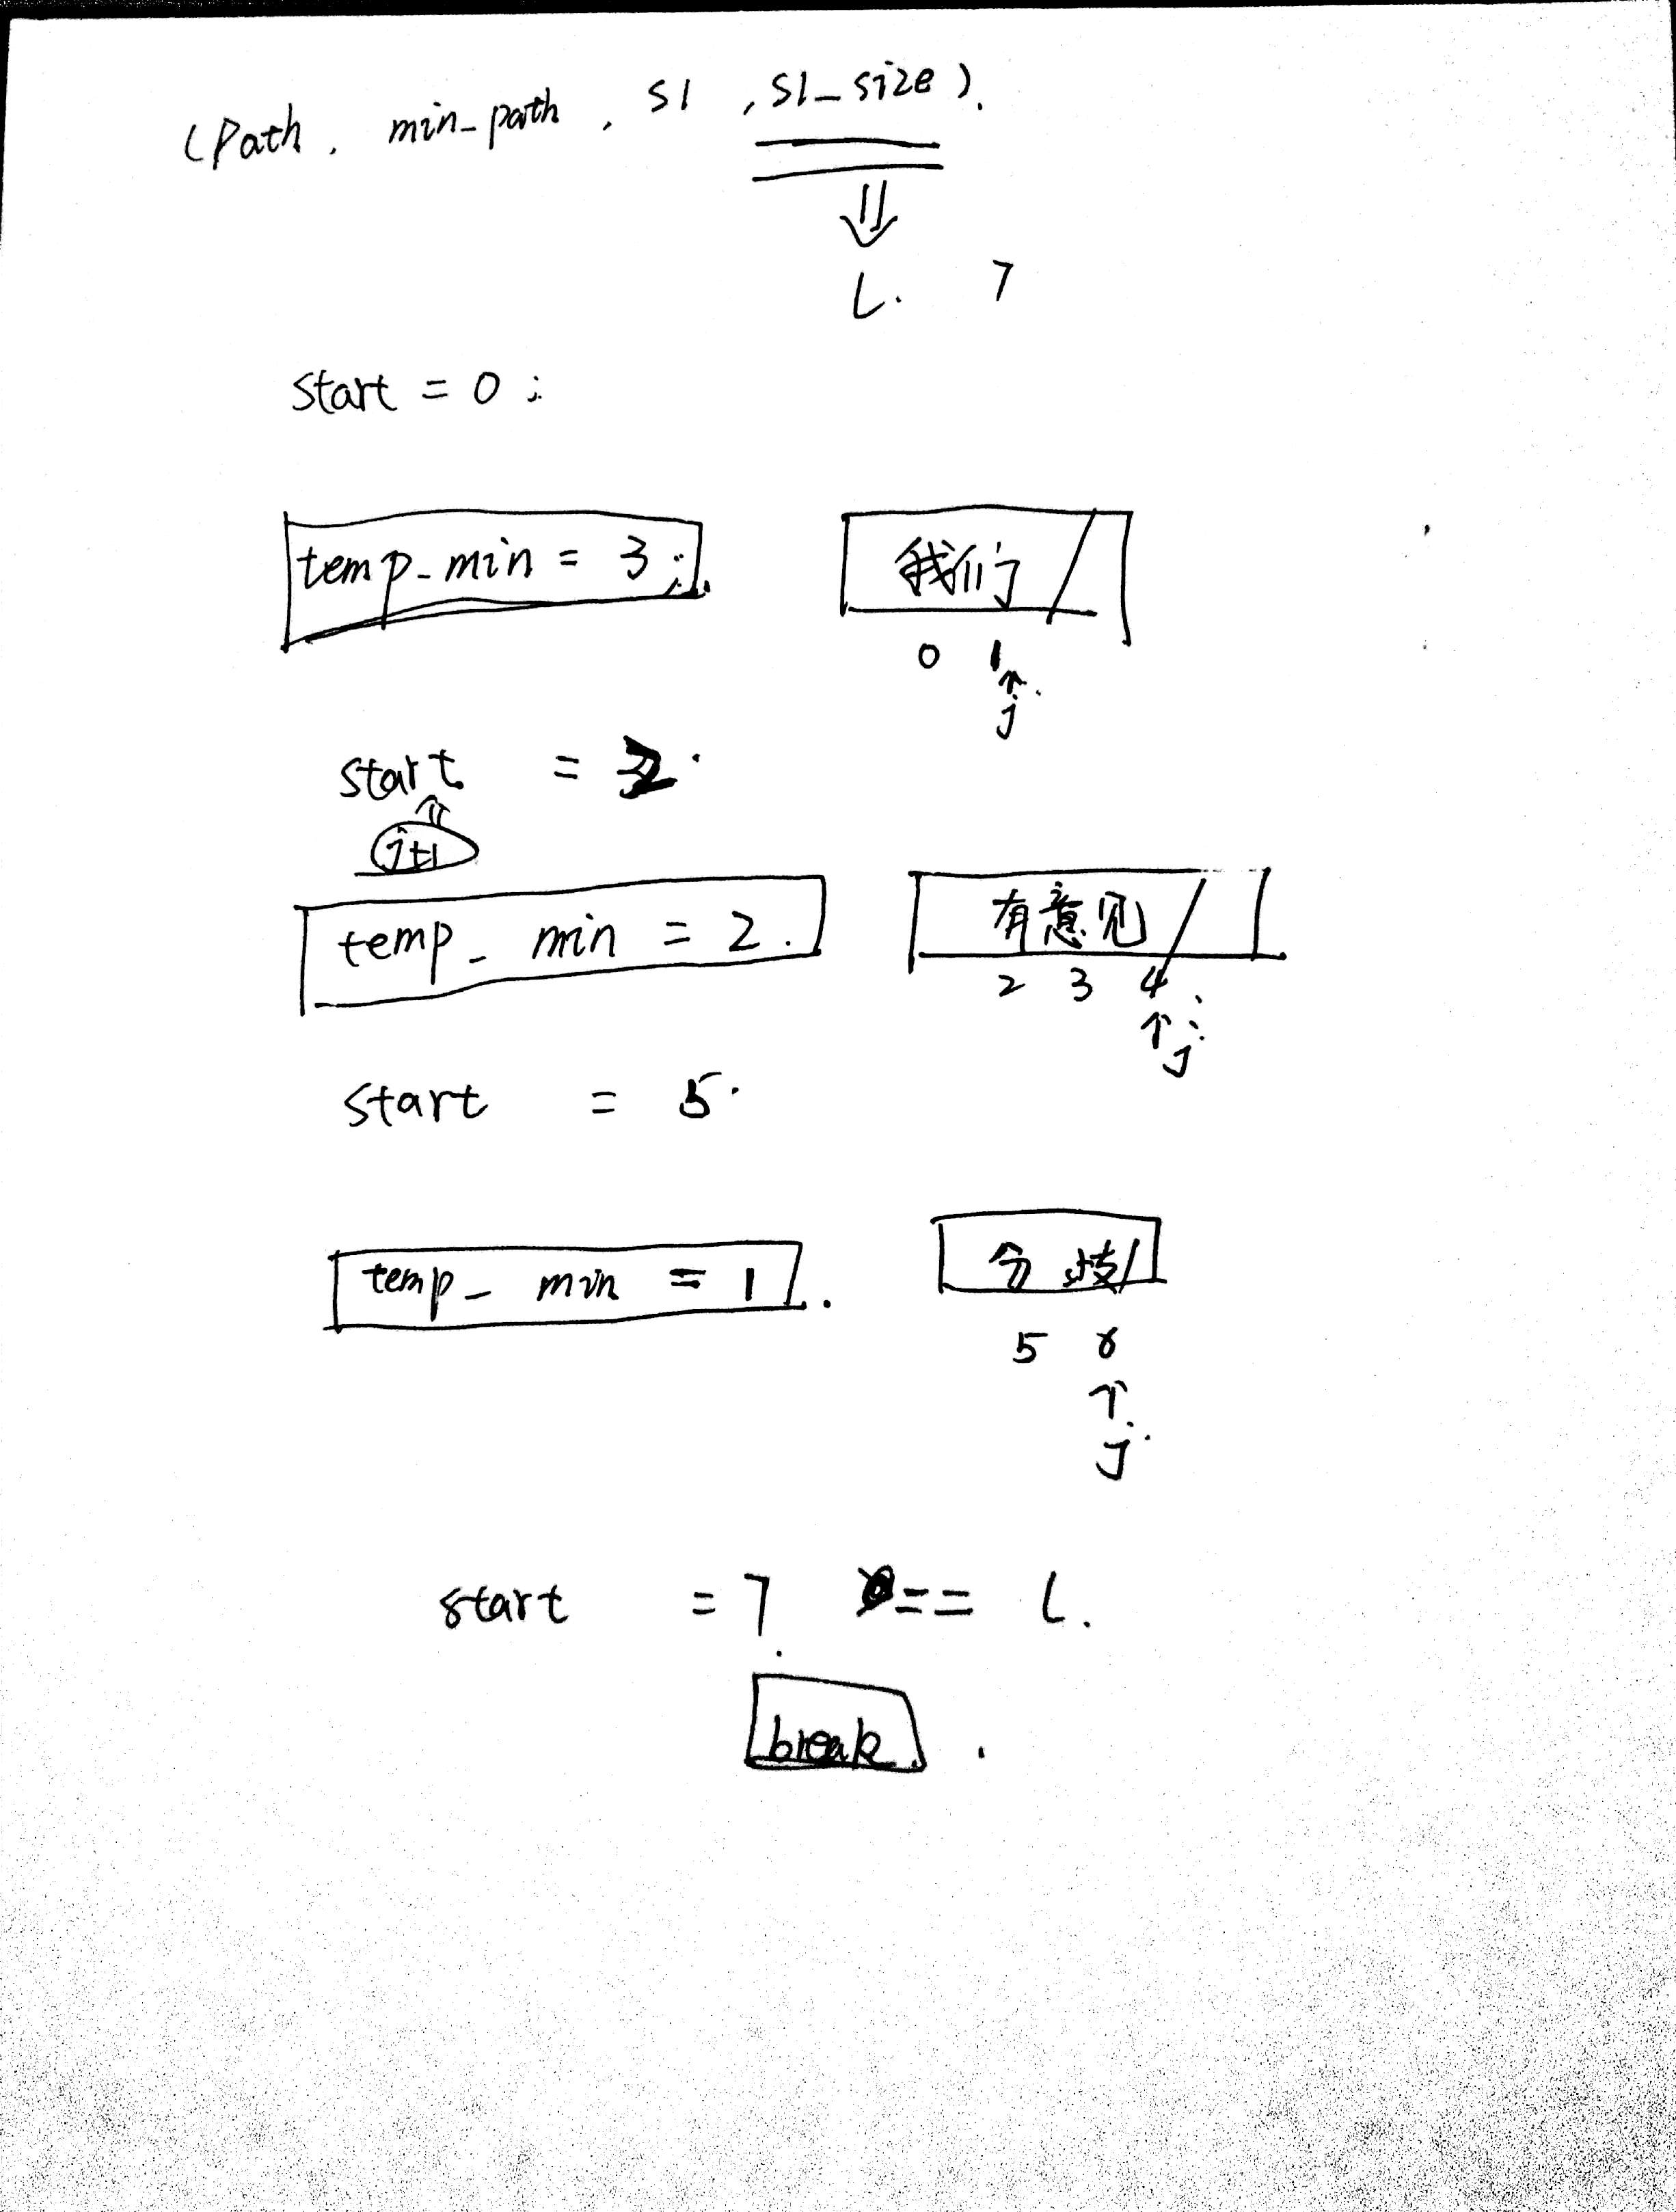 (Path, min_path, S1, S1_size).
L. 7
start = 0;
temp_min = 3; 我们/
0 1
j
start = 2.
j+1
temp_min = 2. 有意见/
2 3 4
j
start = 5.
temp_min = 1. 分歧/
5 6
j
start = 7 == L.
break.